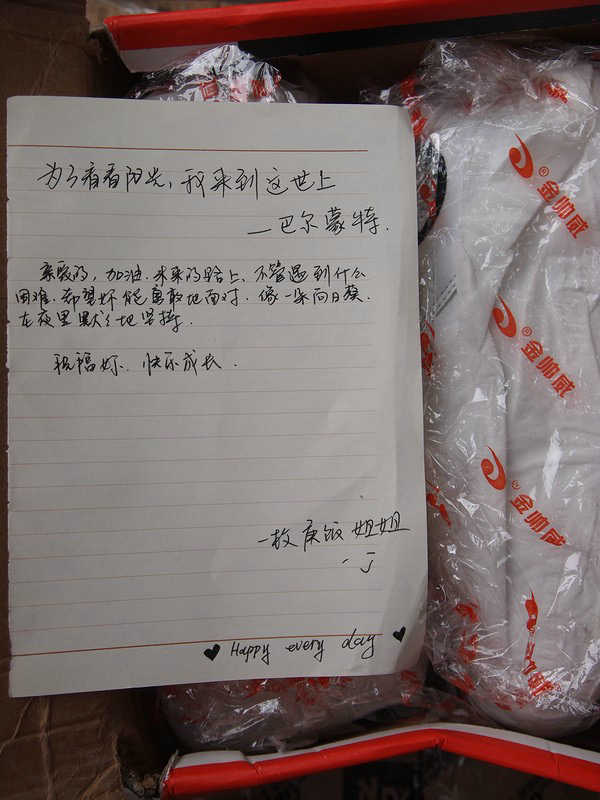 为了看看阳光，我来到这世上
—巴尔蒙特.
亲爱的，加油.未来的路上、不管遇到什么
困难.希望妳能勇敢地面对.像一朵向日葵.
在夜里默々地坚持.
祝福妳、快乐成长.
一枚庚饭姐姐
、J
♥ Happy every day ♥
®金帅威
®金帅威
®金帅威